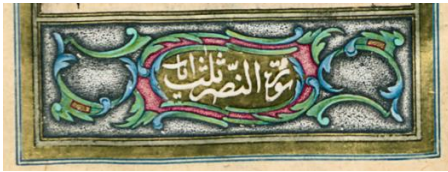 سورة النصر ثلث ايات